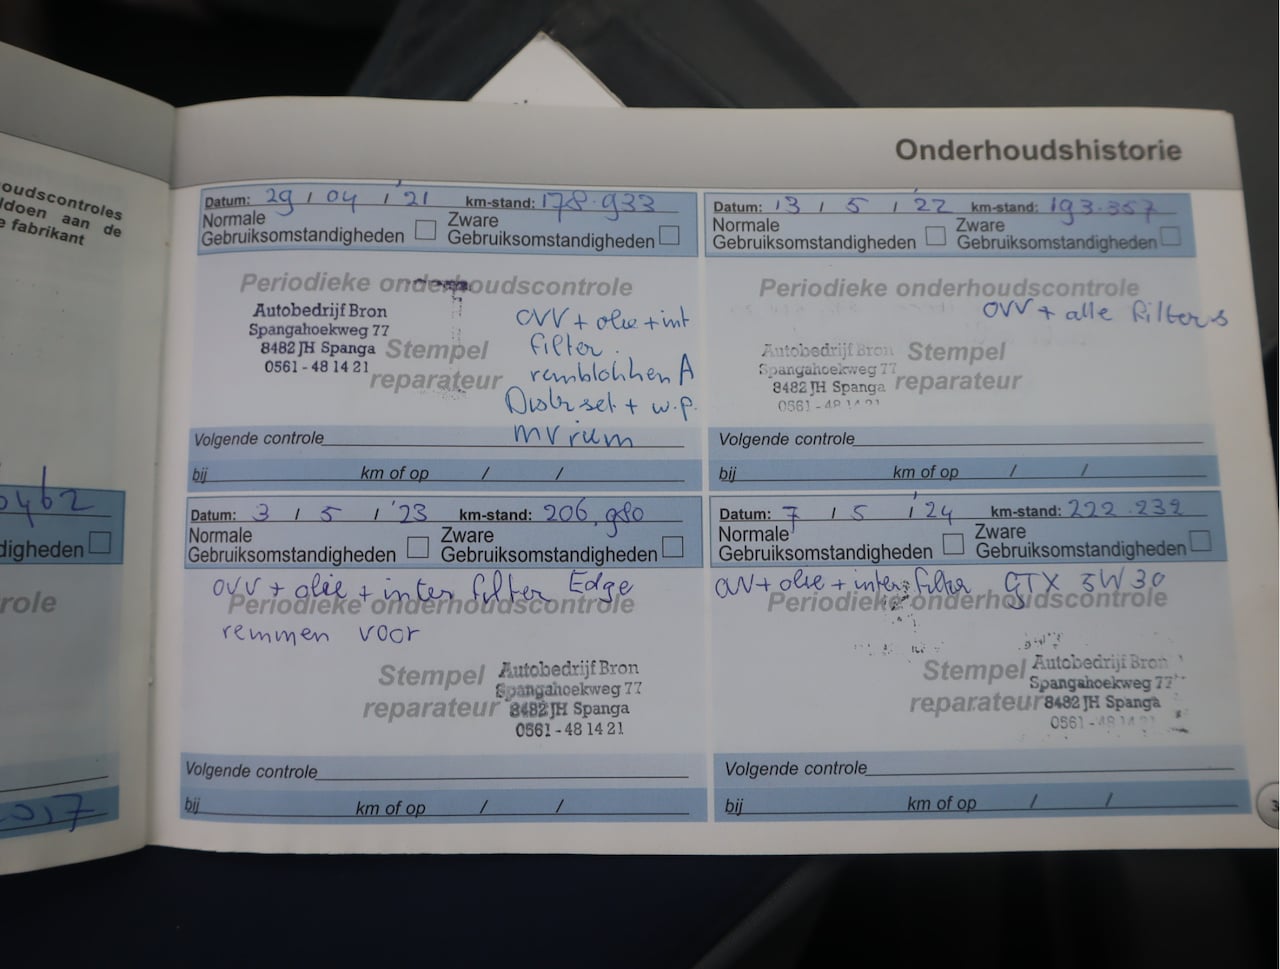 oudscontroles
ldoen aan de
e fabrikant
462
digheden
role
2017
Onderhoudshistorie
Datum: 29 / 04 / '21 km-stand: 178.933
Normale Zware
Gebruiksomstandigheden Gebruiksomstandigheden
Periodieke onderhoudscontrole
Autobedrijf Bron
Spangahoekweg 77
8482 JH Spanga
0561 - 48 14 21
Stempel
reparateur
OVV + olie + int
filter.
remblokken A
Distr set + w.p.
Volgende controle
bij km of op / /
Datum: 13 / 5 / '22 km-stand: 193.357
Normale Zware
Gebruiksomstandigheden Gebruiksomstandigheden
Periodieke onderhoudscontrole
OVV + alle filters
Autobedrijf Bron
Spangahoekweg 77
8482 JH Spanga
0561 - 48 14 21
Stempel
reparateur
Volgende controle
bij km of op / /
Datum: 3 / 5 / '23 km-stand: 206.980
Normale Zware
Gebruiksomstandigheden Gebruiksomstandigheden
OVV + olie + inter filter Edge
Periodieke onderhoudscontrole
remmen voor
Stempel
reparateur
Autobedrijf Bron
Spangahoekweg 77
8482 JH Spanga
0561 - 48 14 21
Volgende controle
bij km of op / /
Datum: 7 / 5 / '24 km-stand: 222.232
Normale Zware
Gebruiksomstandigheden Gebruiksomstandigheden
OVV + olie + inter filter GTX 5W30
Periodieke onderhoudscontrole
Stempel
reparateur
Autobedrijf Bron
Spangahoekweg 77
8482 JH Spanga
0561 - 48 14 21
Volgende controle
bij km of op / /
3